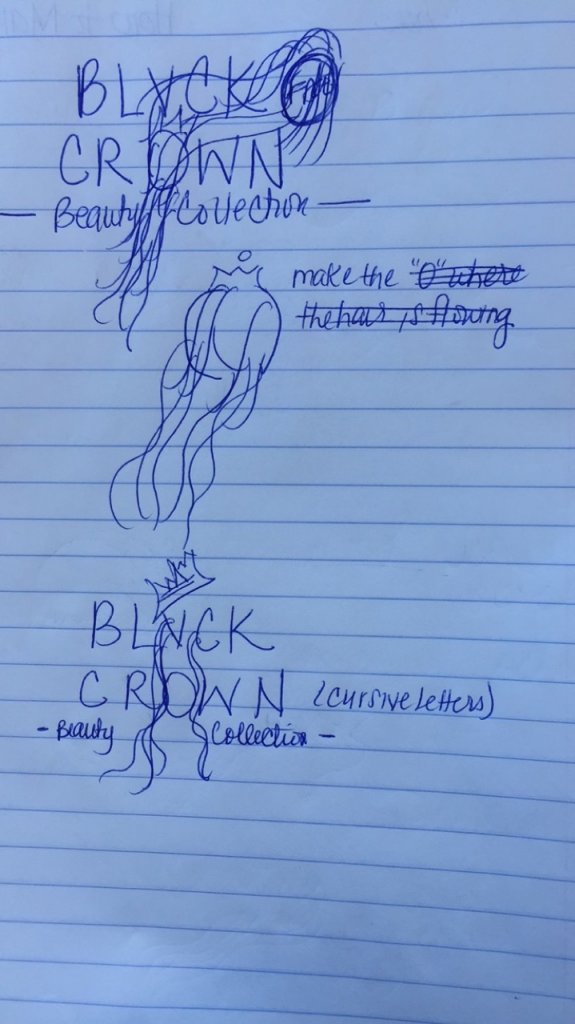 BLVCK
CROWN
Beauty Collection
make the "O" where
the hair is flowing
BLVCK
CROWN (cursive letters)
- Beauty Collection -